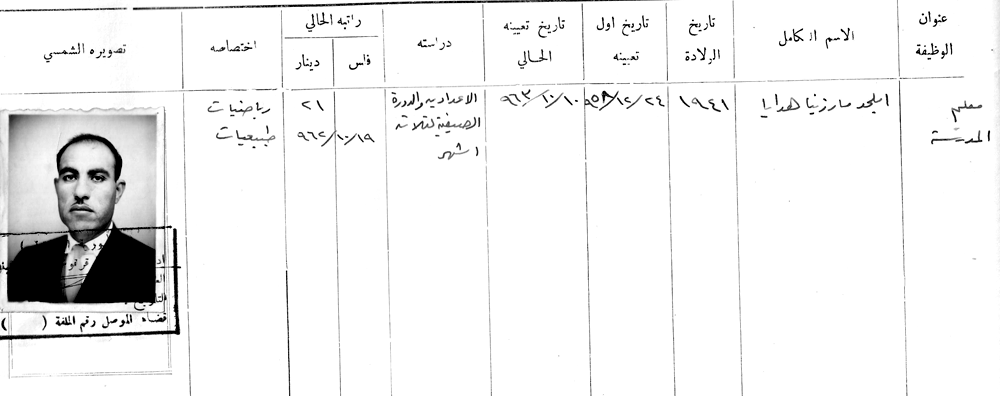 عنوان الوظيفة
الاسم الكامل
تاريخ الولادة
تاريخ اول تعيينه
تاريخ تعيينه الحالي
دراسته
راتبه الحالي
دينار
فلس
اختصاصه
تصويره الشمسي
معلم المدرسة
ايلجد مارزينا هدايا
١٩٤١
٩٥٨/١٢/٢٤
٩٦٣/١٠/١٠
الاعدادية والدورة
الصيفية لثلاثة
اشهر
٢١
٩٦٢/١٠/١٩
رياضيات
طبيعيات
قضاء الموصل رقم الملفة ( )